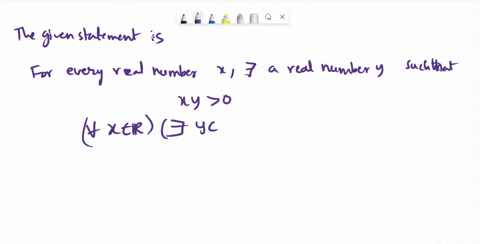 The given statement is
For every real number x, ∃ a real number y such that
xy > 0
(∀ x∈ℝ) (∃ y∈